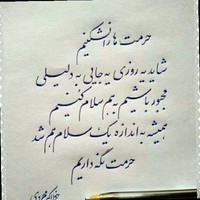 حرمت ها را نشکنیم
شاید یه روزی یه جایی به دلیلی
مجبور باشیم به هم سلام کنیم
همیشه به اندازه یک سلام هم شد
حرمت نگه داریم